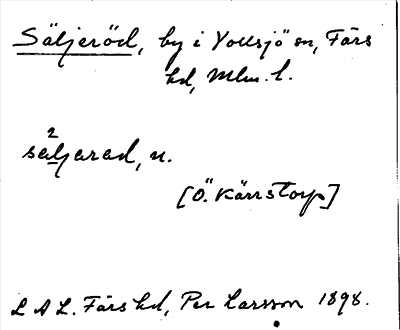 Säljeröd, by i Vollsjö sn, Färs
hd, Mlm. l.
2
säljarad, n.
[Ö. Kärrstorp]
L A L. Färs hd, Per Larsson 1898.